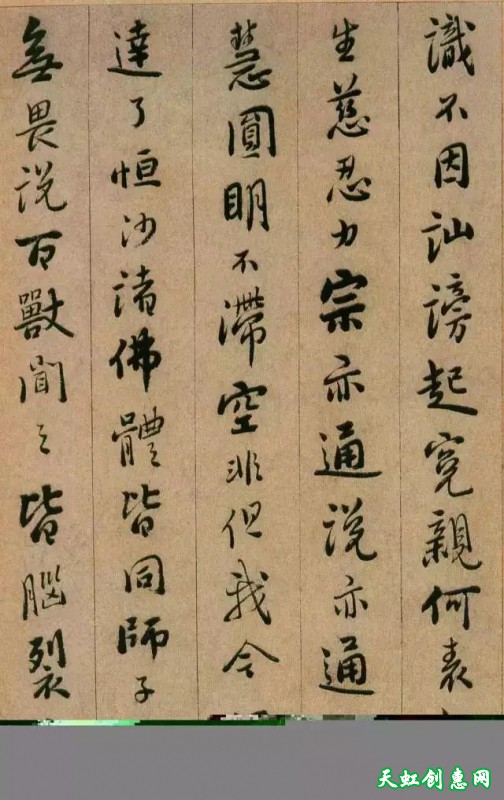 識不因訕謗起寃親何表
生慈忍力宗亦通說亦通
慧圓明不滯空非但我今
達了恒沙諸佛體皆同師子
無畏說百獸聞之皆腦裂
天虹创惠网